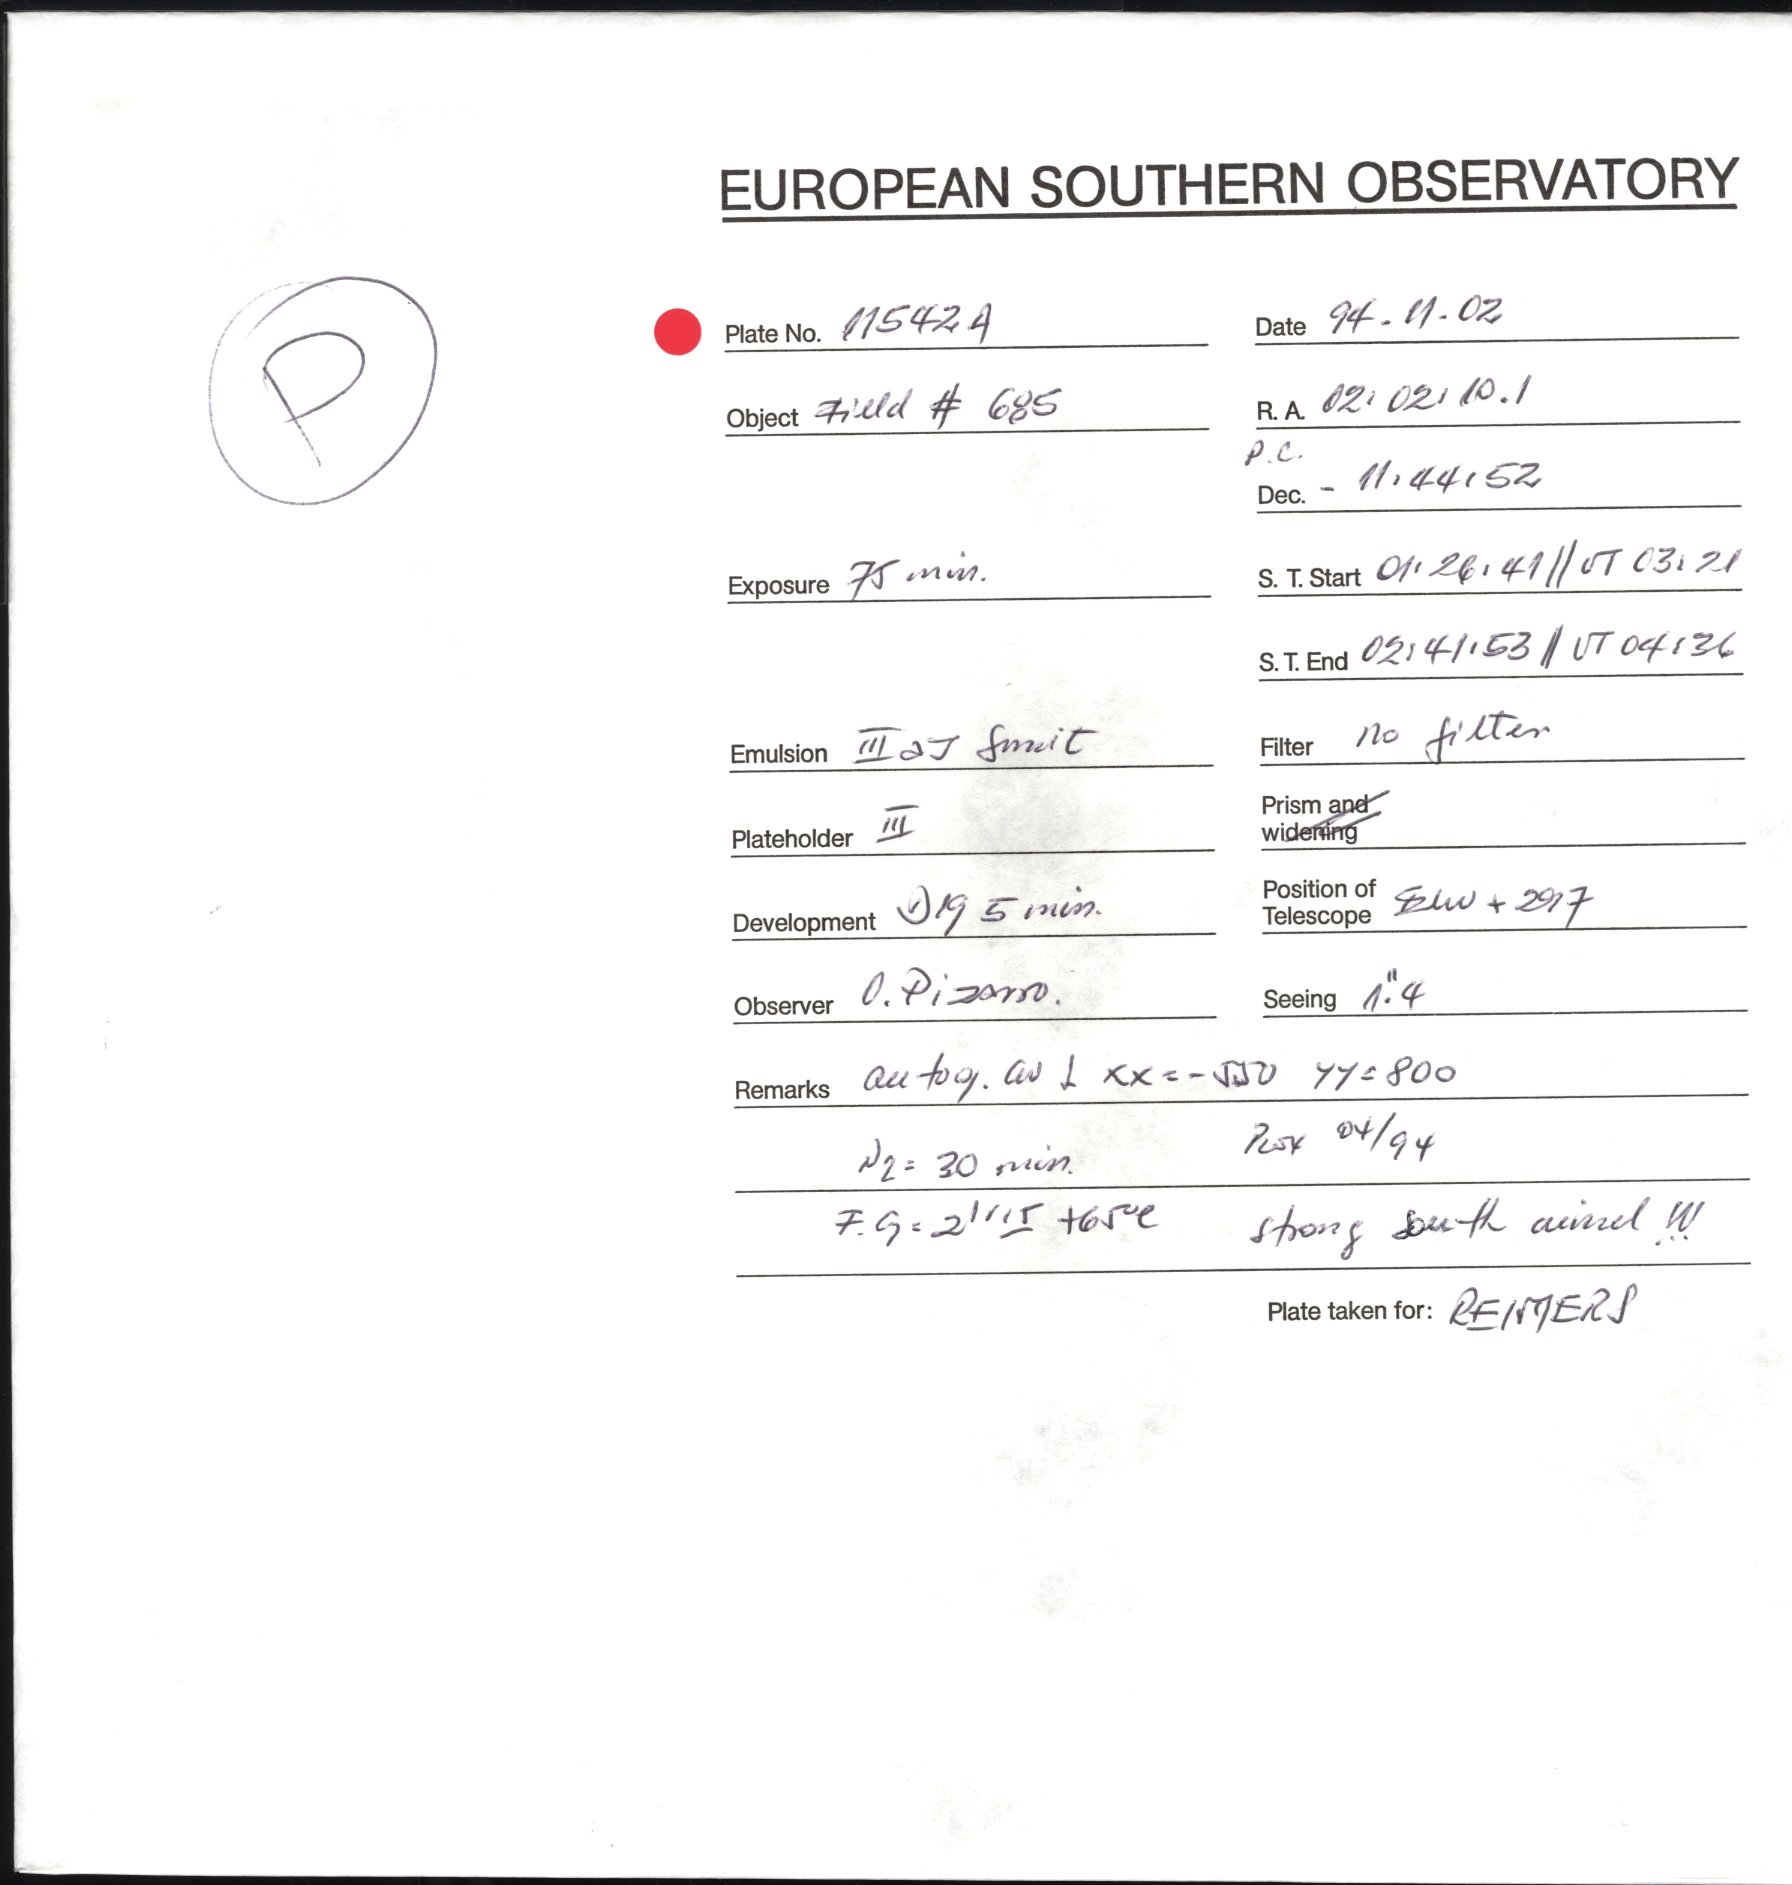 EUROPEAN SOUTHERN OBSERVATORY
P
Plate No. 11542A
Date 94-11-02
Object Field # 685
R. A. 02:02:10.1
P.C.
Dec. - 11:44:52
Exposure 75 min.
S. T. Start 01:26:41 // UT 03:21
S. T. End 02:41:53 // UT 04:36
Emulsion III aJ
Filter no filter
Plateholder III
Prism and widening
Development D19 5 min.
Position of Telescope + 2917
Observer O. Pizarro.
Seeing 1".4
Remarks autog. xx=-550 yy=800
N2= 30 min. 04/94
F.G= +65°C strong south !!!
Plate taken for: REIMERS